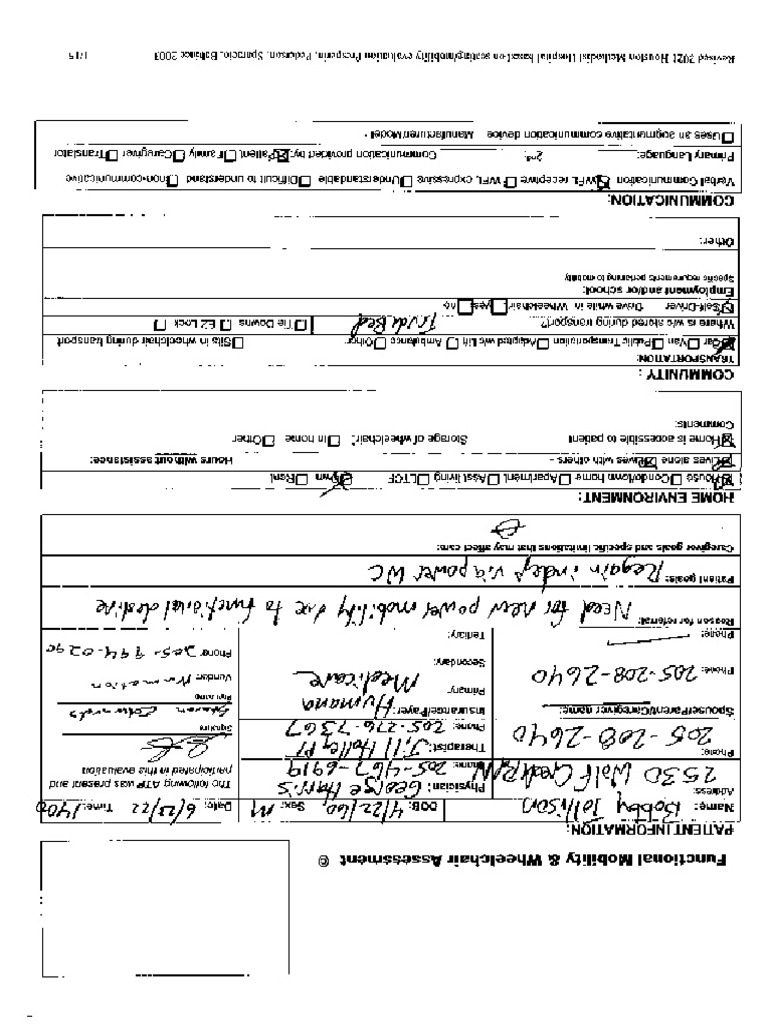 Functional Mobility & Wheelchair Assessment ©
PATIENT INFORMATION:
Name: Bobby Tollison DOB: 4/22/60 Sex: M Date: 6/23/22 Time: 1400
Address: 2530 Wolf Creek Physician: George Harris The following ATP was present and
Phone: 205-467-6919 participated in this evaluation
Phone: 205-208-2640 Therapist: Jill Holley PT Signature
Phone: 205-276-7367
Spouse/Parent/Caregiver name: Insurance/Payer: Humana
Primary: Medicare
Phone: 205-208-2640 Secondary: Vendor Numotion
Phone: Tertiary: Phone 205-994-0290
Reason for referral: Need for new power mobility due to functional decline
Patient goals: Regain indep via power WC
Caregiver goals and specific limitations that may affect care:
HOME ENVIRONMENT:
☒House ☐Condo/town home ☐Apartment ☐Asst living ☐LTCF ☒Own ☐Rent
☒Lives alone ☒Lives with others - Hours without assistance:
☒Home is accessible to patient Storage of wheelchair: ☐In home ☐Other
Comments:
COMMUNITY :
TRANSPORTATION:
☒Car ☐Van ☐Public Transportation ☐Adapted w/c Lift ☐Ambulance ☐Other: ☐Sits in wheelchair during transport
Where is w/c stored during transport? Truck Bed ☐Tie Downs ☐EZ Lock ☐
☒Self-Driver Drive while in Wheelchair ☐yes ☐no
Employment and/or school:
Specific requirements pertaining to mobility
Other:
COMMUNICATION:
Verbal Communication ☒WFL receptive ☐WFL expressive ☐Understandable ☐Difficult to understand ☐non-communicative
Primary Language: 2nd: Communication provided by: ☒Patient ☐Family ☐Caregiver ☐Translator
☐Uses an augmentative communication device Manufacturer/Model -
Revised 2021 Houston Methodist Hospital based on seating/mobility evaluation Prosperin, Pederson, Sparacio, Babinec 2003 1/15